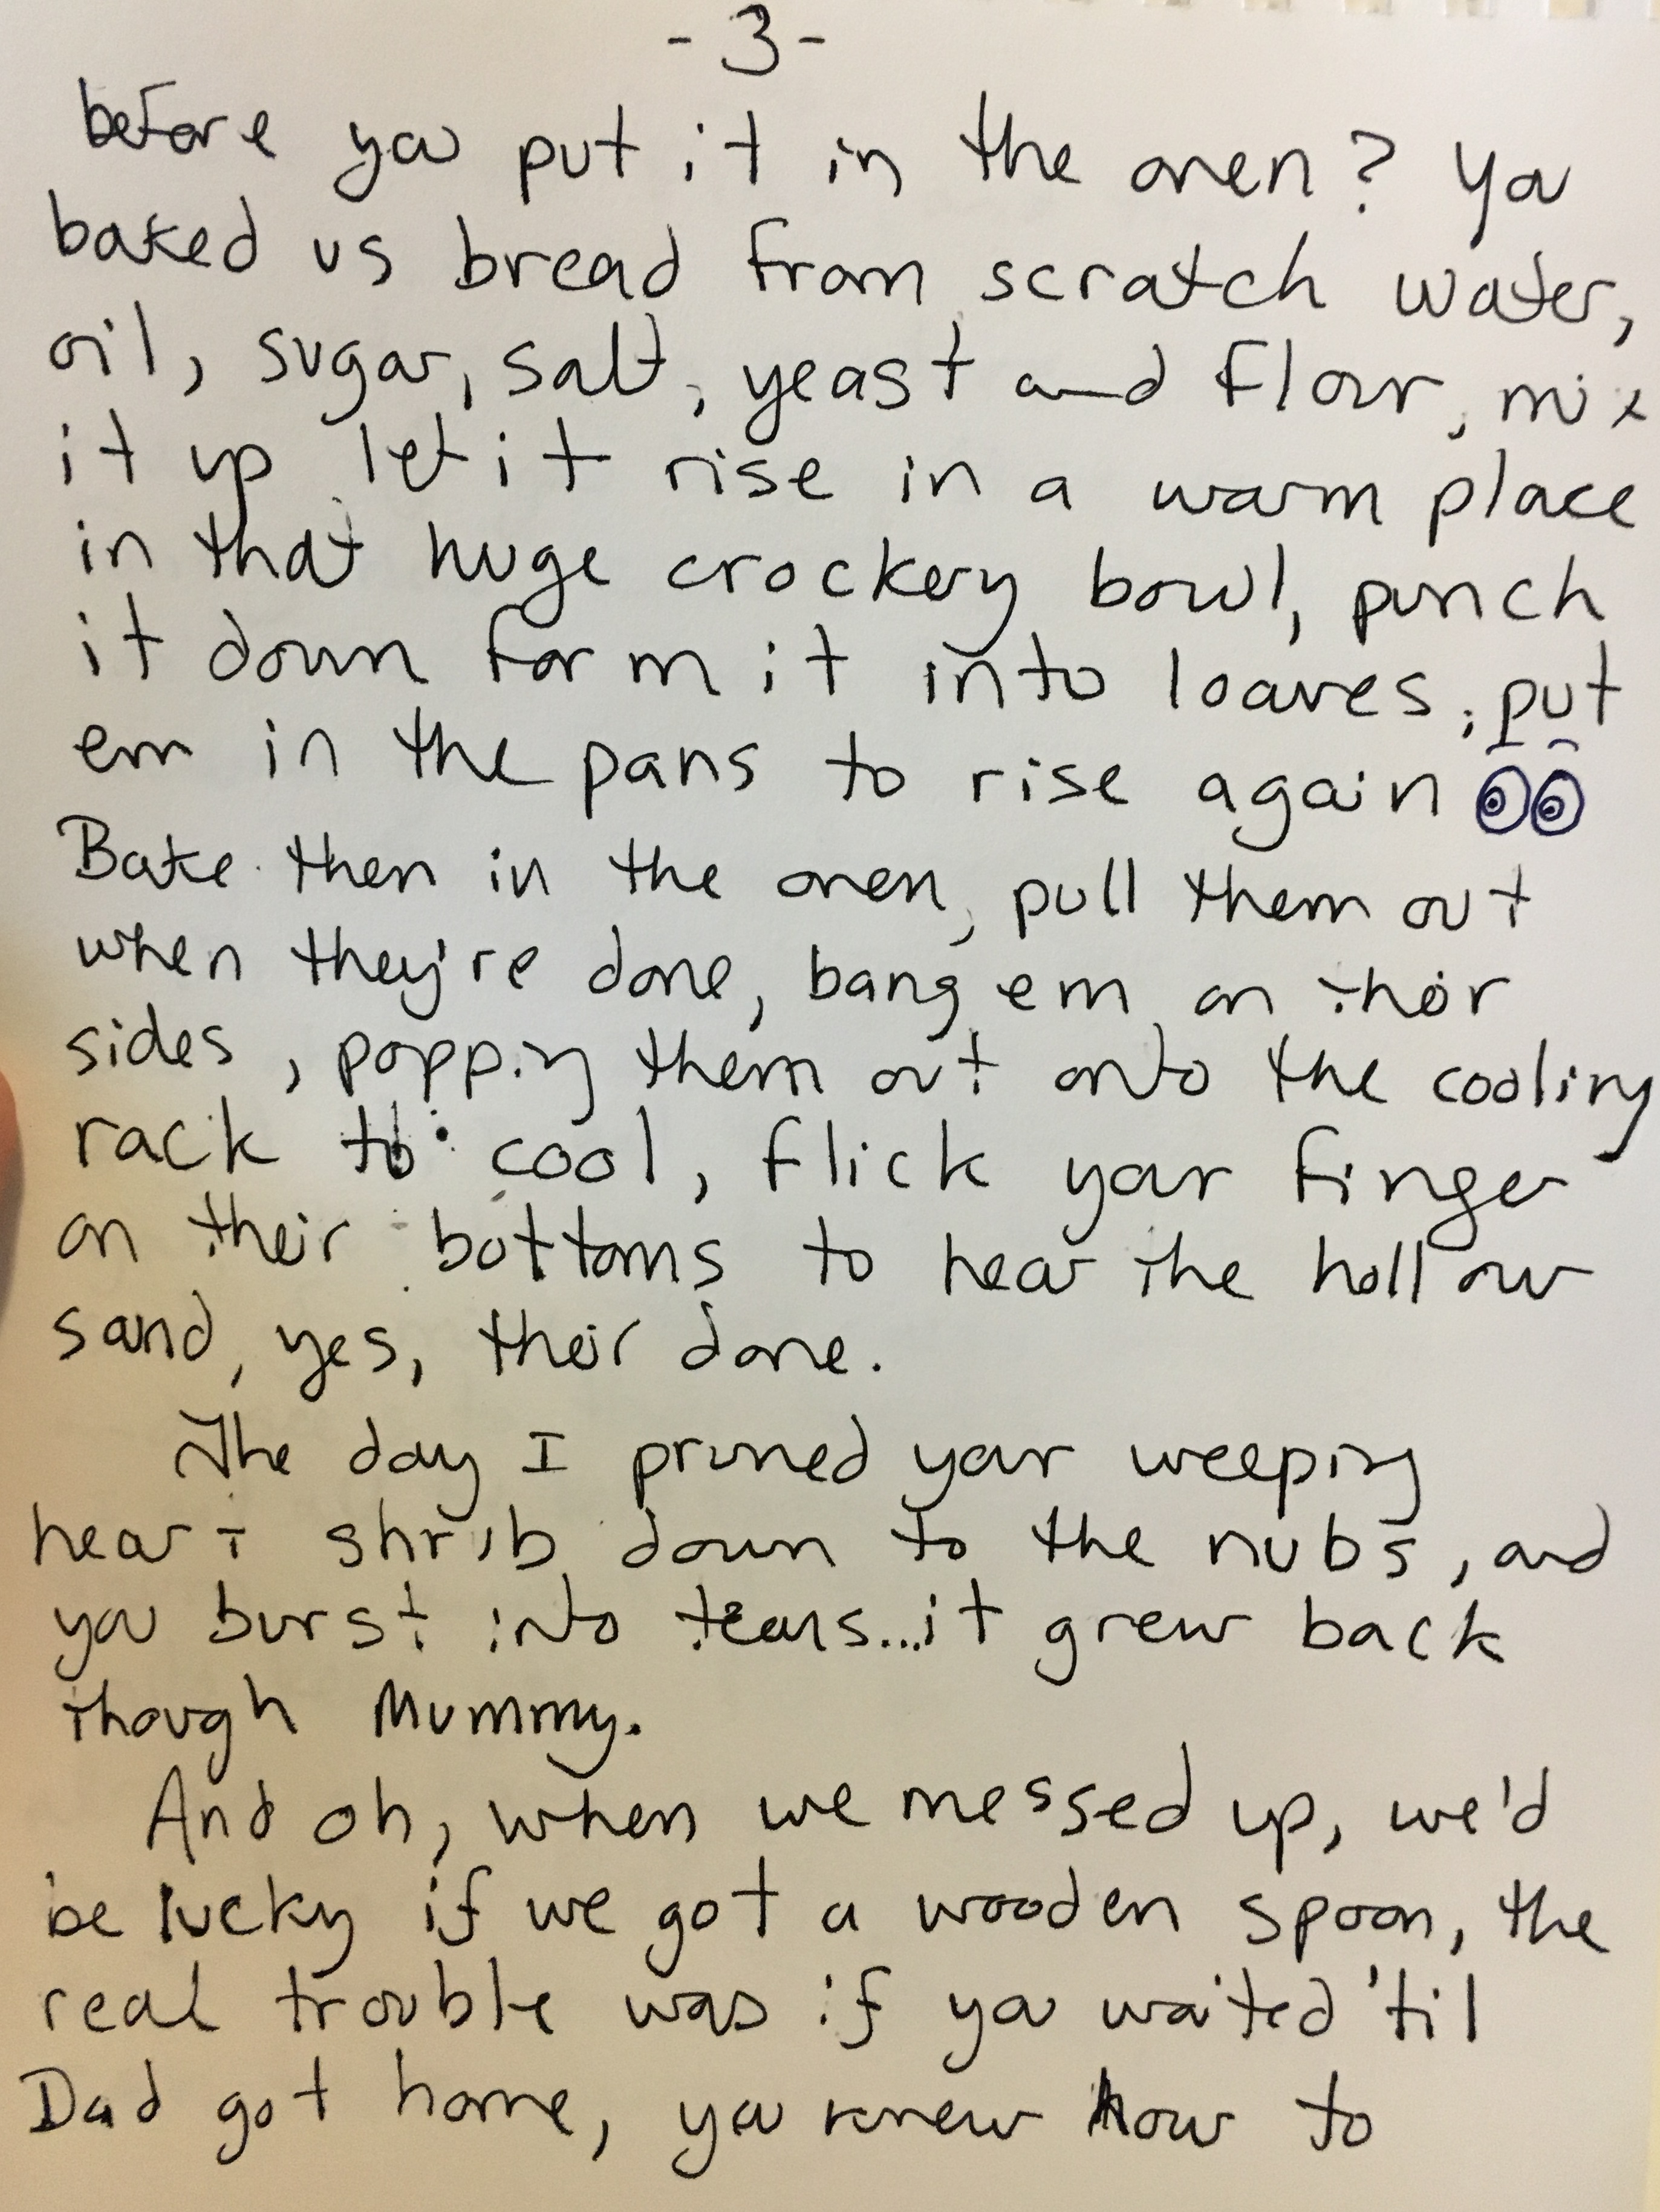 - 3 -
before you put it in the oven? You
baked us bread from scratch water,
oil, sugar, salt, yeast and flour, mix
it up, let it rise in a warm place
in that huge crockery bowl, punch
it down form it into loaves, put
em in the pans to rise again
Bake then in the oven, pull them out
when they're done, bang em on their
sides, popping them out onto the cooling
rack to cool, flick your finger
on their bottoms to hear the hollow
sound, yes, their done.
The day I pruned your weeping
heart shrub down to the nubs, and
you burst into tears...it grew back
though Mummy.
And oh, when we messed up, we'd
be lucky if we got a wooden spoon, the
real trouble was if you waited 'til
Dad got home, you knew how to